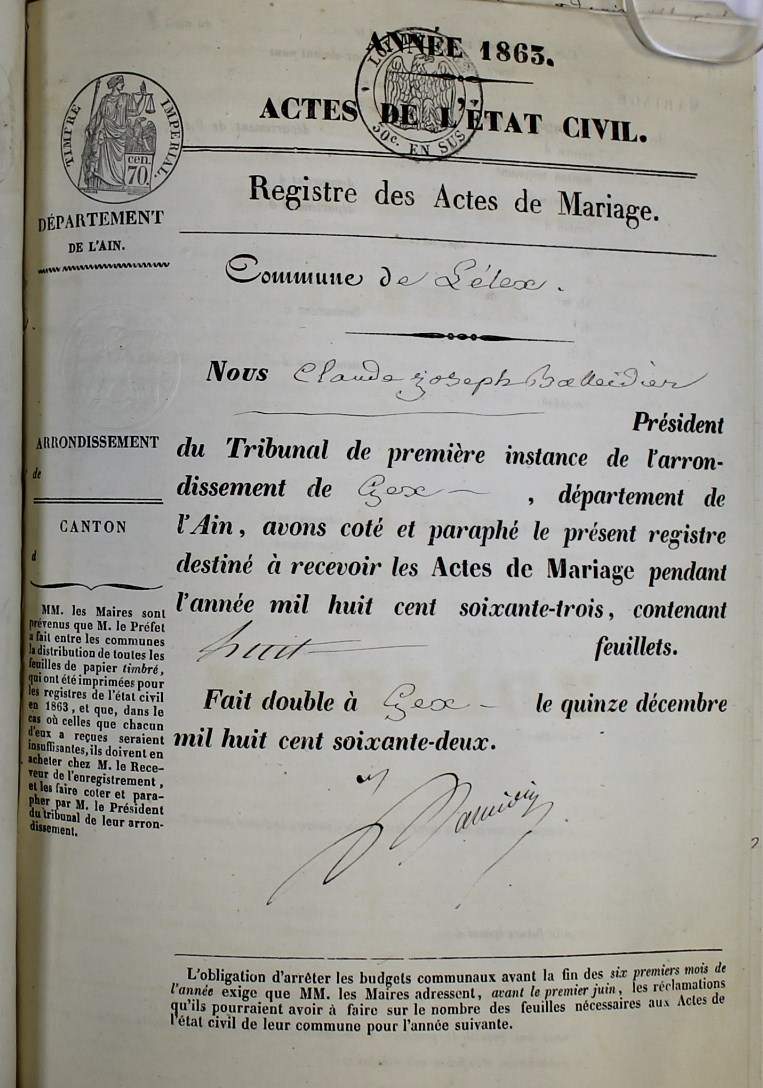 ANNÉE 1863.
50c. EN SUS
ACTES DE L'ÉTAT CIVIL.
TIMBRE IMPERIAL.
cen.
70.
Registre des Actes de Mariage.
DÉPARTEMENT
DE L'AIN.
Commune de Lélex.
Nous Claude Joseph
Président
du Tribunal de première instance de l'arron-
dissement de Gex, département de
l'Ain, avons coté et paraphé le présent registre
destiné à recevoir les Actes de Mariage pendant
l'année mil huit cent soixante-trois, contenant
huit feuillets.
Fait double à Gex le quinze décembre
mil huit cent soixante-deux.
ARRONDISSEMENT
de
CANTON
d
MM. les Maires sont
prévenus que M. le Préfet
a fait entre les communes
la distribution de toutes les
feuilles de papier timbré,
qui ont été imprimées pour
les registres de l'état civil
en 1863, et que, dans le
cas où celles que chacun
d'eux a reçues seraient
insuffisantes, ils doivent en
acheter chez M. le Rece-
veur de l'enregistrement,
et les faire coter et para-
pher par M. le Président
du tribunal de leur arron-
dissement.
L'obligation d'arrêter les budgets communaux avant la fin des six premiers mois de
l'année exige que MM. les Maires adressent, avant le premier juin, les réclamations
qu'ils pourraient avoir à faire sur le nombre des feuilles nécessaires aux Actes de
l'état civil de leur commune pour l'année suivante.